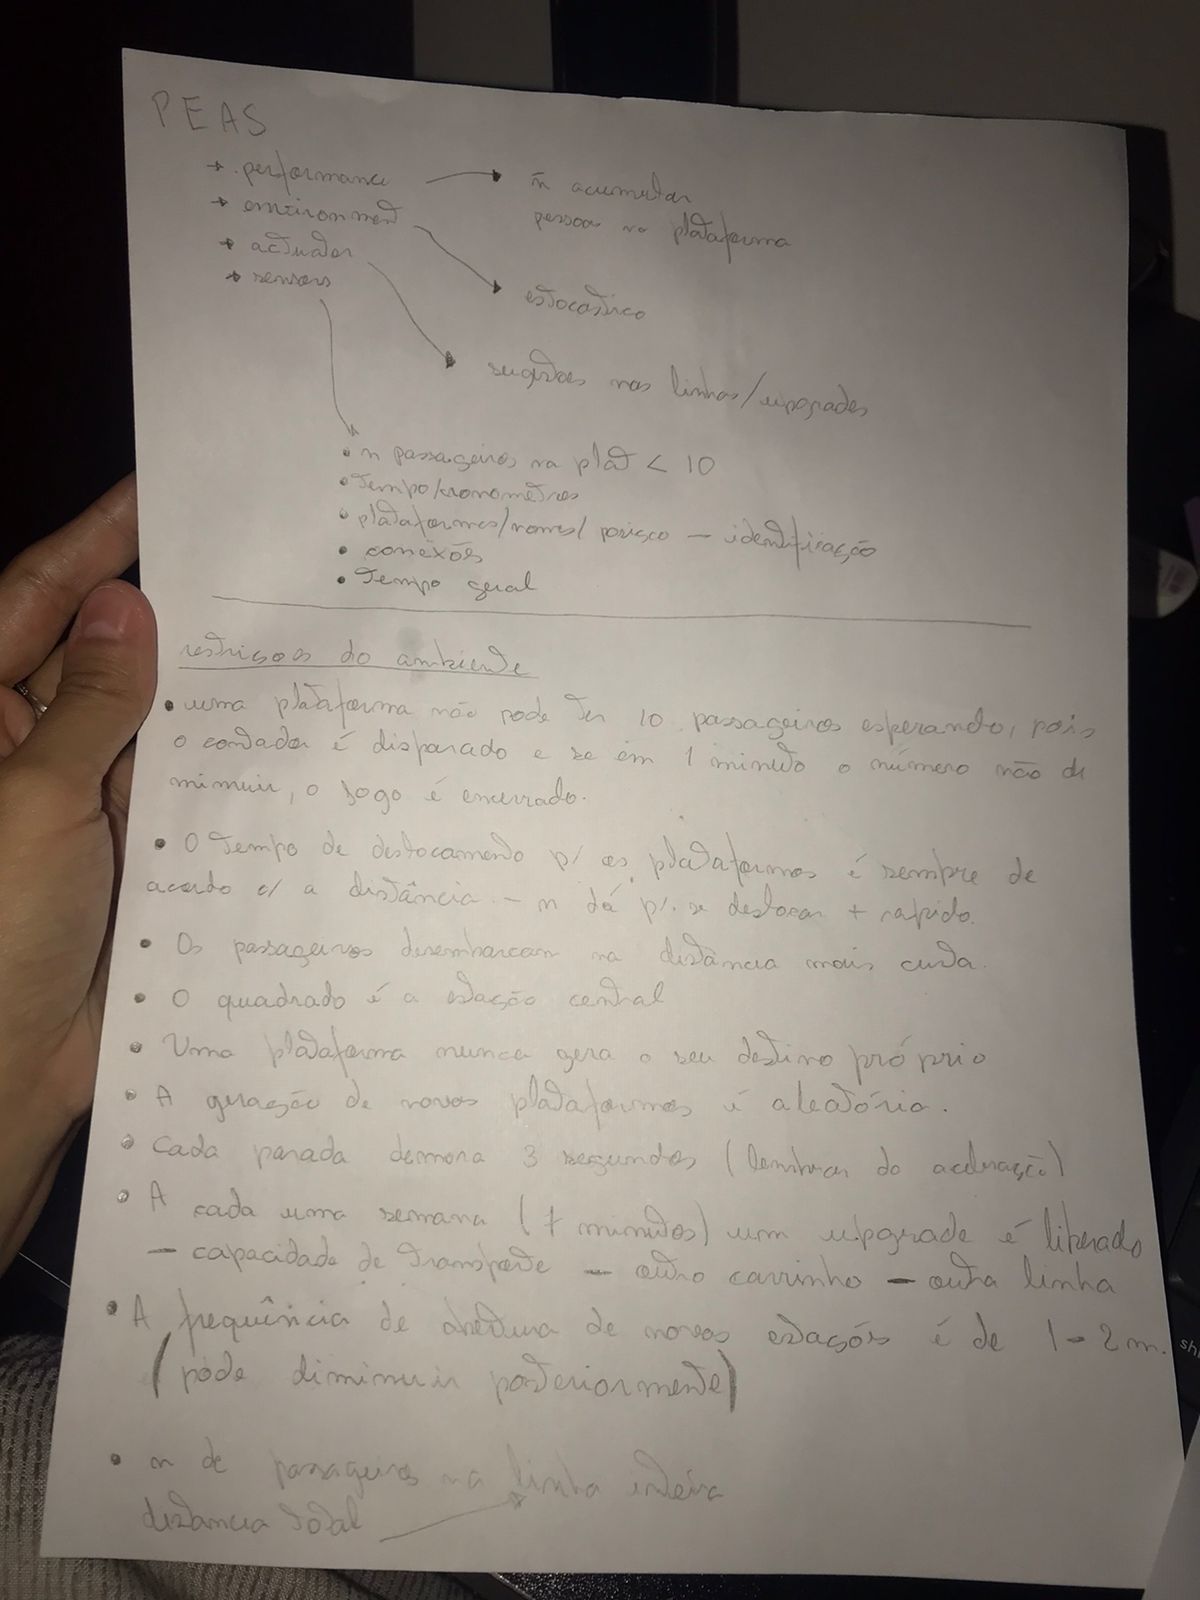 PEAS
→ performance → ñ acumular
pessoas na plataforma
→ environment → estocástico
→ actuator → sugestões nas linhas/upgrades
→ sensors
• n passageiros na plat < 10
• Tempo/cronometros
• plataformas/nomes/ posição — identificação
• conexões
• Tempo geral
restrições do ambiente
• uma plataforma não pode ter 10 passageiros esperando, pois
o contador é disparado e se em 1 minuto o número não di
minuir, o jogo é encerrado.
• O Tempo de deslocamento p/ as plataformas é sempre de
acordo c/ a distância - n dá p/ se deslocar + rapido.
• Os passageiros desembarcam na distância mais curta.
• O quadrado é a estação central
• Uma plataforma nunca gera o seu destino próprio
• A geração de novas plataformas é aleatória.
• Cada parada demora 3 segundos (lembrar da aceleração)
• A cada uma semana (7 minutos) um upgrade é liberado
— capacidade de transporte — outro carrinho — outra linha
• A frequência de abertura de novas estações é de 1-2 m.
(pode diminuir posteriormente)
• n de passageiros na linha inteira
distancia total →